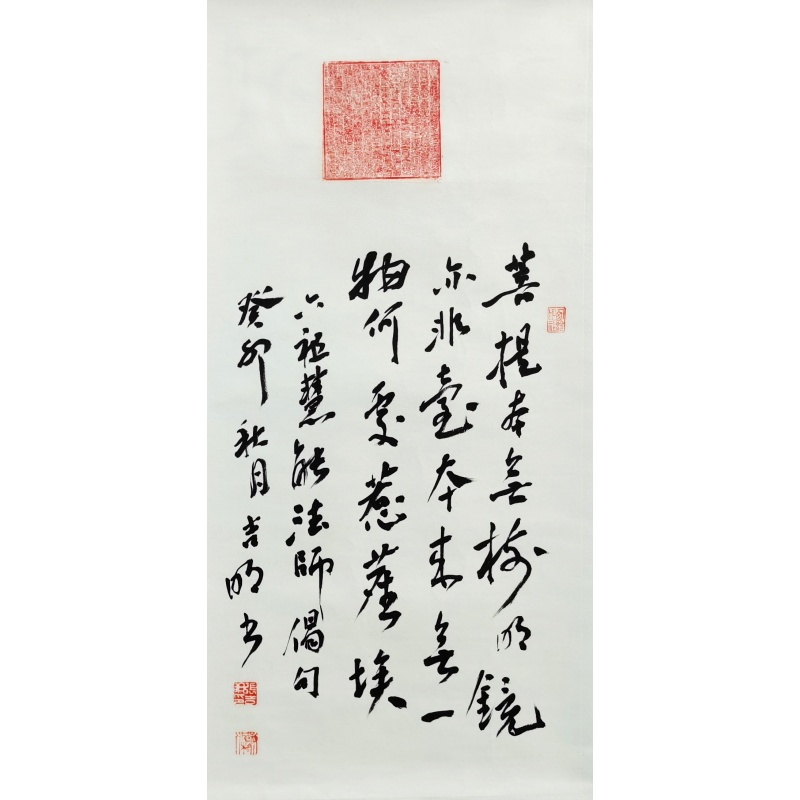 菩提本無樹明鏡
亦非臺本來無一
物何處惹塵埃
六祖慧能法師偈句
癸卯秋月吉明書